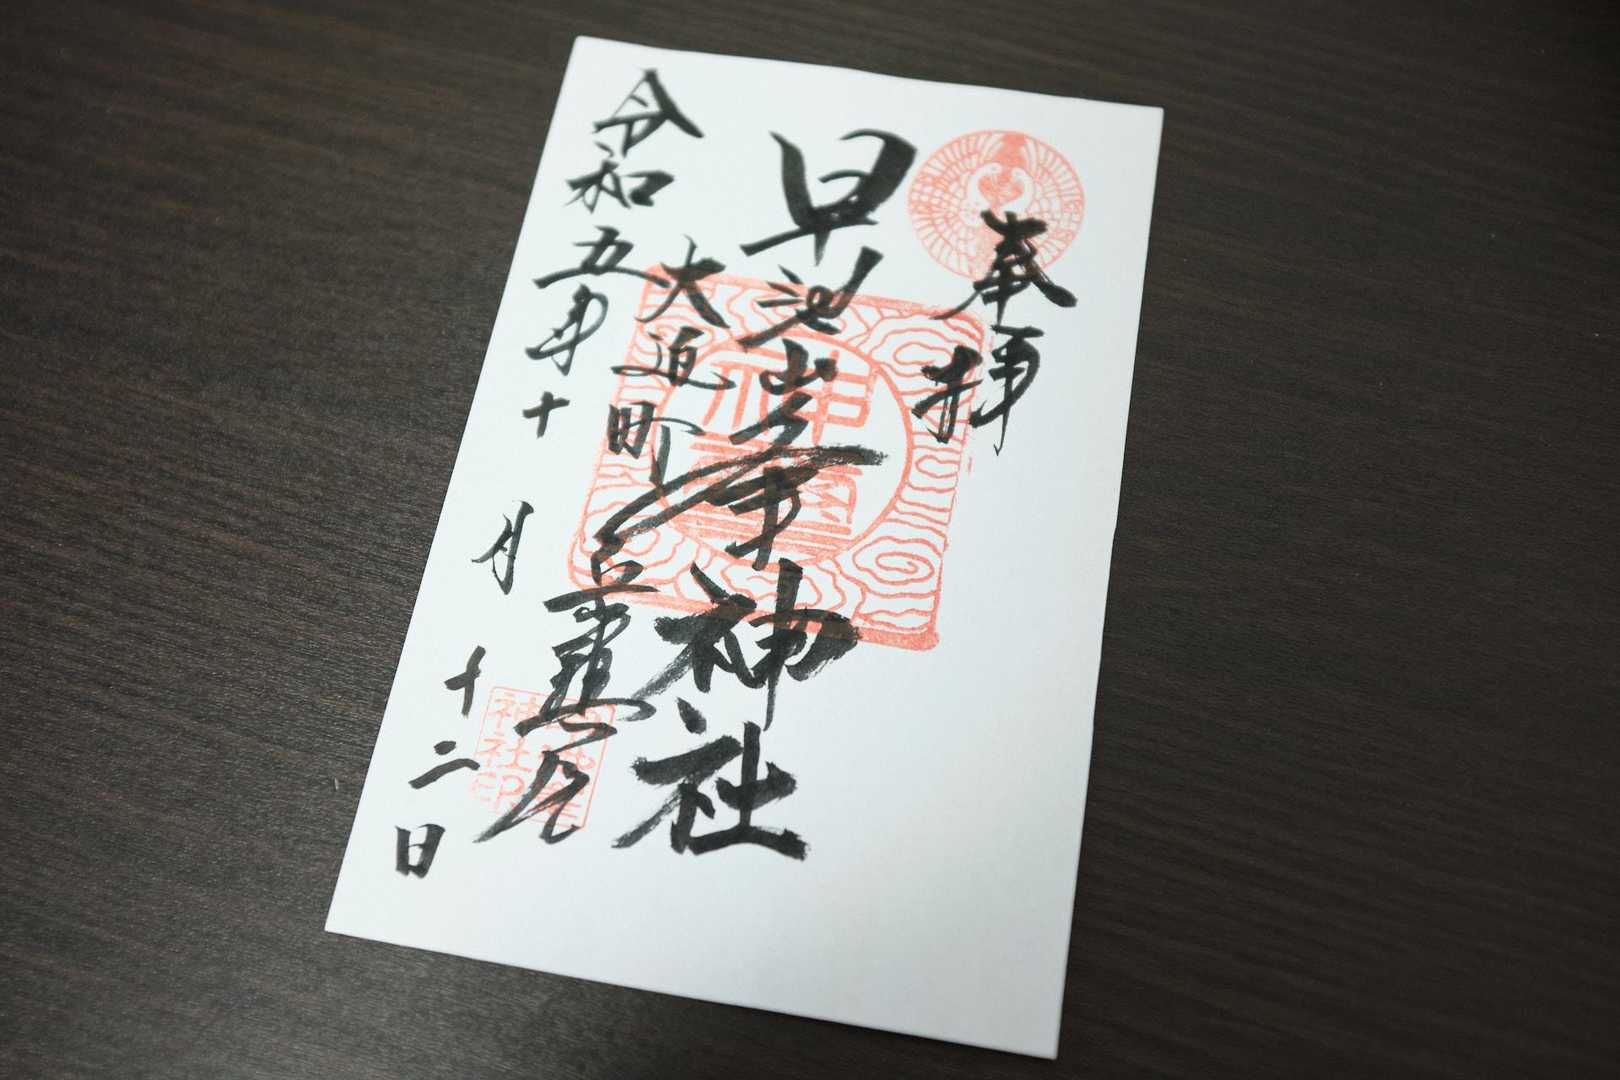 奉拝
早池峯神社
大迫町
令和五年十月十二日
早池峯
神社印